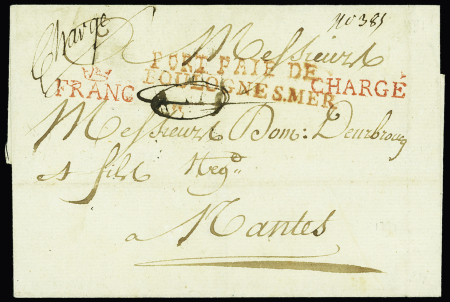 Chargé
No 385
Messieurs
PORT PAYÉ DE
BOULOGNE S. MER
FRANC
CHARGÉ
Messieurs Dom: Deurbroucq
et fils Neg.
a Nantes